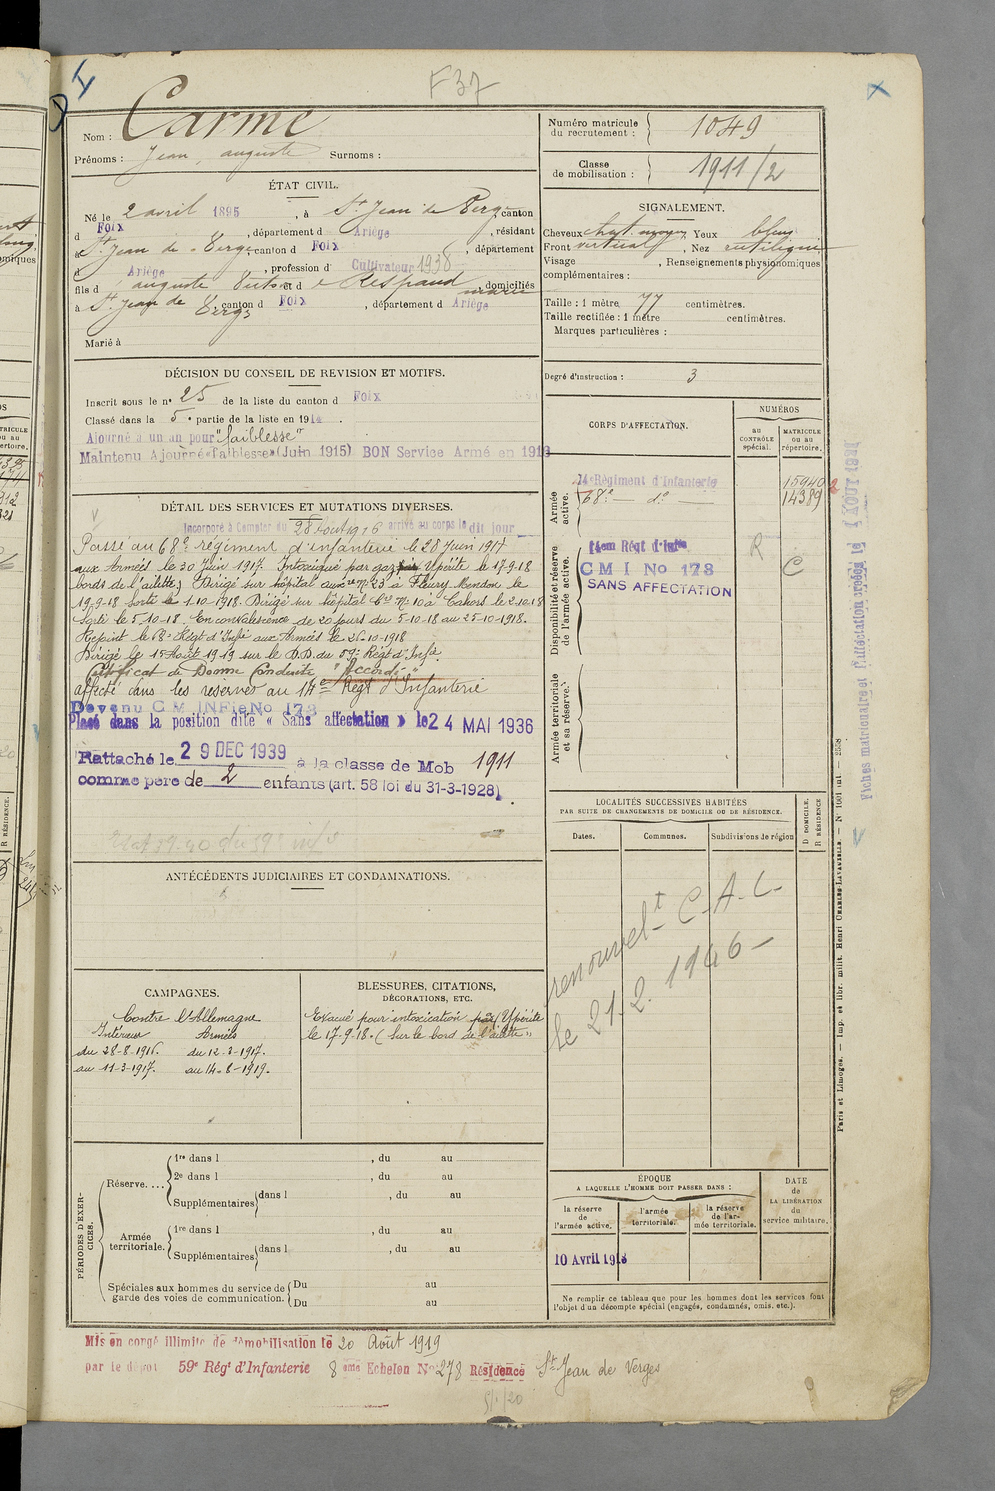 F 37
Nom : Carme
Prénoms : Jean, auguste Surnoms :
Numéro matricule
du recrutement : 1049
Classe
de mobilisation : 1911/2
ÉTAT CIVIL.
Né le 2 avril 1895, à St Jean de Verges canton
d Foix, département d Ariège, résidant
à St Jean de Verges, canton d Foix, département
d Ariège, profession d' Cultivateur 1938
fils d auguste et d Respaud, domiciliés
à St Jean de Verges canton d Foix, département d Ariège
Marié à
SIGNALEMENT.
Cheveux chat. moyen, Yeux bleus
Front vertical, Nez rectiligne
Visage , Renseignements physionomiques
complémentaires :
Taille : 1 mètre 77 centimètres.
Taille rectifiée : 1 mètre centimètres.
Marques particulières :
Degré d'instruction : 3
DÉCISION DU CONSEIL DE REVISION ET MOTIFS.
Inscrit sous le n° 25 de la liste du canton d Foix
Classé dans la 5e partie de la liste en 1914.
Ajourné à un an pour "faiblesse"
Maintenu Ajourné "faiblesse" (Juin 1915) BON Service Armé en 1916
DÉTAIL DES SERVICES ET MUTATIONS DIVERSES.
Incorporé à Compter du 28 Aout 1916 arrivé au corps le dit jour
Passé au 68e régiment d'infanterie le 28 Juin 1917
aux Armées le 30 Juin 1917. Intoxiqué par gaz Ypérite le 17-9-18
bords de l'ailette) Dirigé sur hôpital auxre No 23 à Fleury Meudon le
19-9-18 sorti le 1-10-1918. Dirigé sur hôpital Cre No 10 à Cahors le 2-10-18
Sorti le 5-10-18. En convalescence de 20 jours du 5-10-18 au 25-10-1918.
Rejoint le 68e Régt d'Infie aux Armées le 26-10-1918
Dirigé le 15 Août 1919 sur le D.D. du 59e Régt d'Infie
Certificat de Bonne Conduite "Accordé"
affecté dans les réserves au 14e Régt d'Infanterie
Devenu C M INFie No 178
Placé dans la position dite « Sans affectation » le 24 MAI 1936
Rattaché le 29 DEC 1939 à la classe de Mob 1911
comme père de 2 enfants (art. 58 loi du 31-3-1928).
CORPS D'AFFECTATION.
NUMÉROS
au
CONTRÔLE
spécial.
MATRICULE
ou au
répertoire.
Armée
active.
14e Régiment d'Infanterie 15940
68e — do — 14389
Disponibilité et réserve
de l'armée active.
14em Régt d'Infie
C M I No 178
SANS AFFECTATION
R
C
Armée territoriale
et sa réserve.
LOCALITÉS SUCCESSIVES HABITÉES
PAR SUITE DE CHANGEMENTS DE DOMICILE OU DE RÉSIDENCE.
Dates. Communes. Subdivisions de région
D DOMICILE.
R RÉSIDENCE
renouvelt C.A.C.
le 21.2.1946
ANTÉCÉDENTS JUDICIAIRES ET CONDAMNATIONS.
CAMPAGNES.
Contre l'Allemagne
Intérieur Armées
du 28-8-1916. du 12-3-1917.
au 11-3-1917. au 14-8-1919.
BLESSURES, CITATIONS,
DÉCORATIONS, ETC.
Evacué pour intoxication par Ypérite
le 17-9-18. (Sur le bord de l'ailette)
PÉRIODES D'EXERCICES.
Réserve....
1re dans l , du au
2e dans l , du au
Supplémentaires dans l , du au
Armée
territoriale.
1re dans l , du au
Supplémentaires dans l , du au
Spéciales aux hommes du service de
garde des voies de communication.
Du au
Du au
ÉPOQUE
A LAQUELLE L'HOMME DOIT PASSER DANS :
la réserve
de
l'armée active.
l'armée
territoriale.
la réserve
de l'ar-
mée territoriale.
DATE
de
LA LIBÉRATION
du
service militaire.
10 Avril 1918
Ne remplir ce tableau que pour les hommes dont les services font
l'objet d'un décompte spécial (engagés, condamnés, omis, etc.).
Mis en congé illimité de démobilisation le 20 Août 1919
par le dépôt 59e Régt d'Infanterie 8eme Echelon No 278 Résidence St Jean de Verges
Paris et Limoges. — Imp. et libr. milit. Henri CHARLES-LAVAUZELLE.